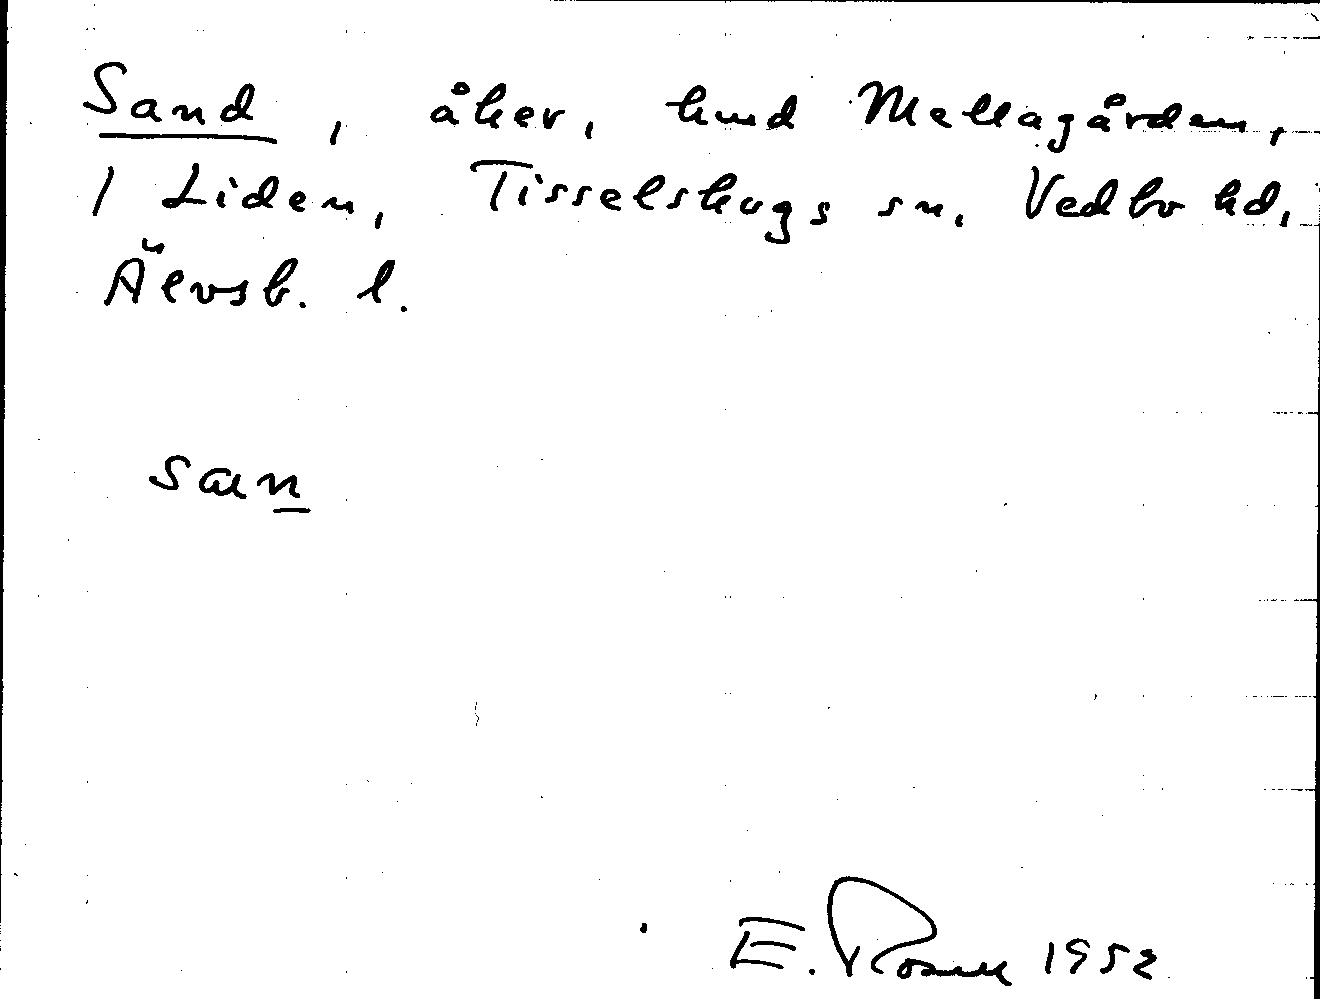 Sand, åker, hmd Mellagården,
1 Liden, Tisselskogs sn. Vedbo hd.
Älvsb. l.
san
E. Rosell 1952